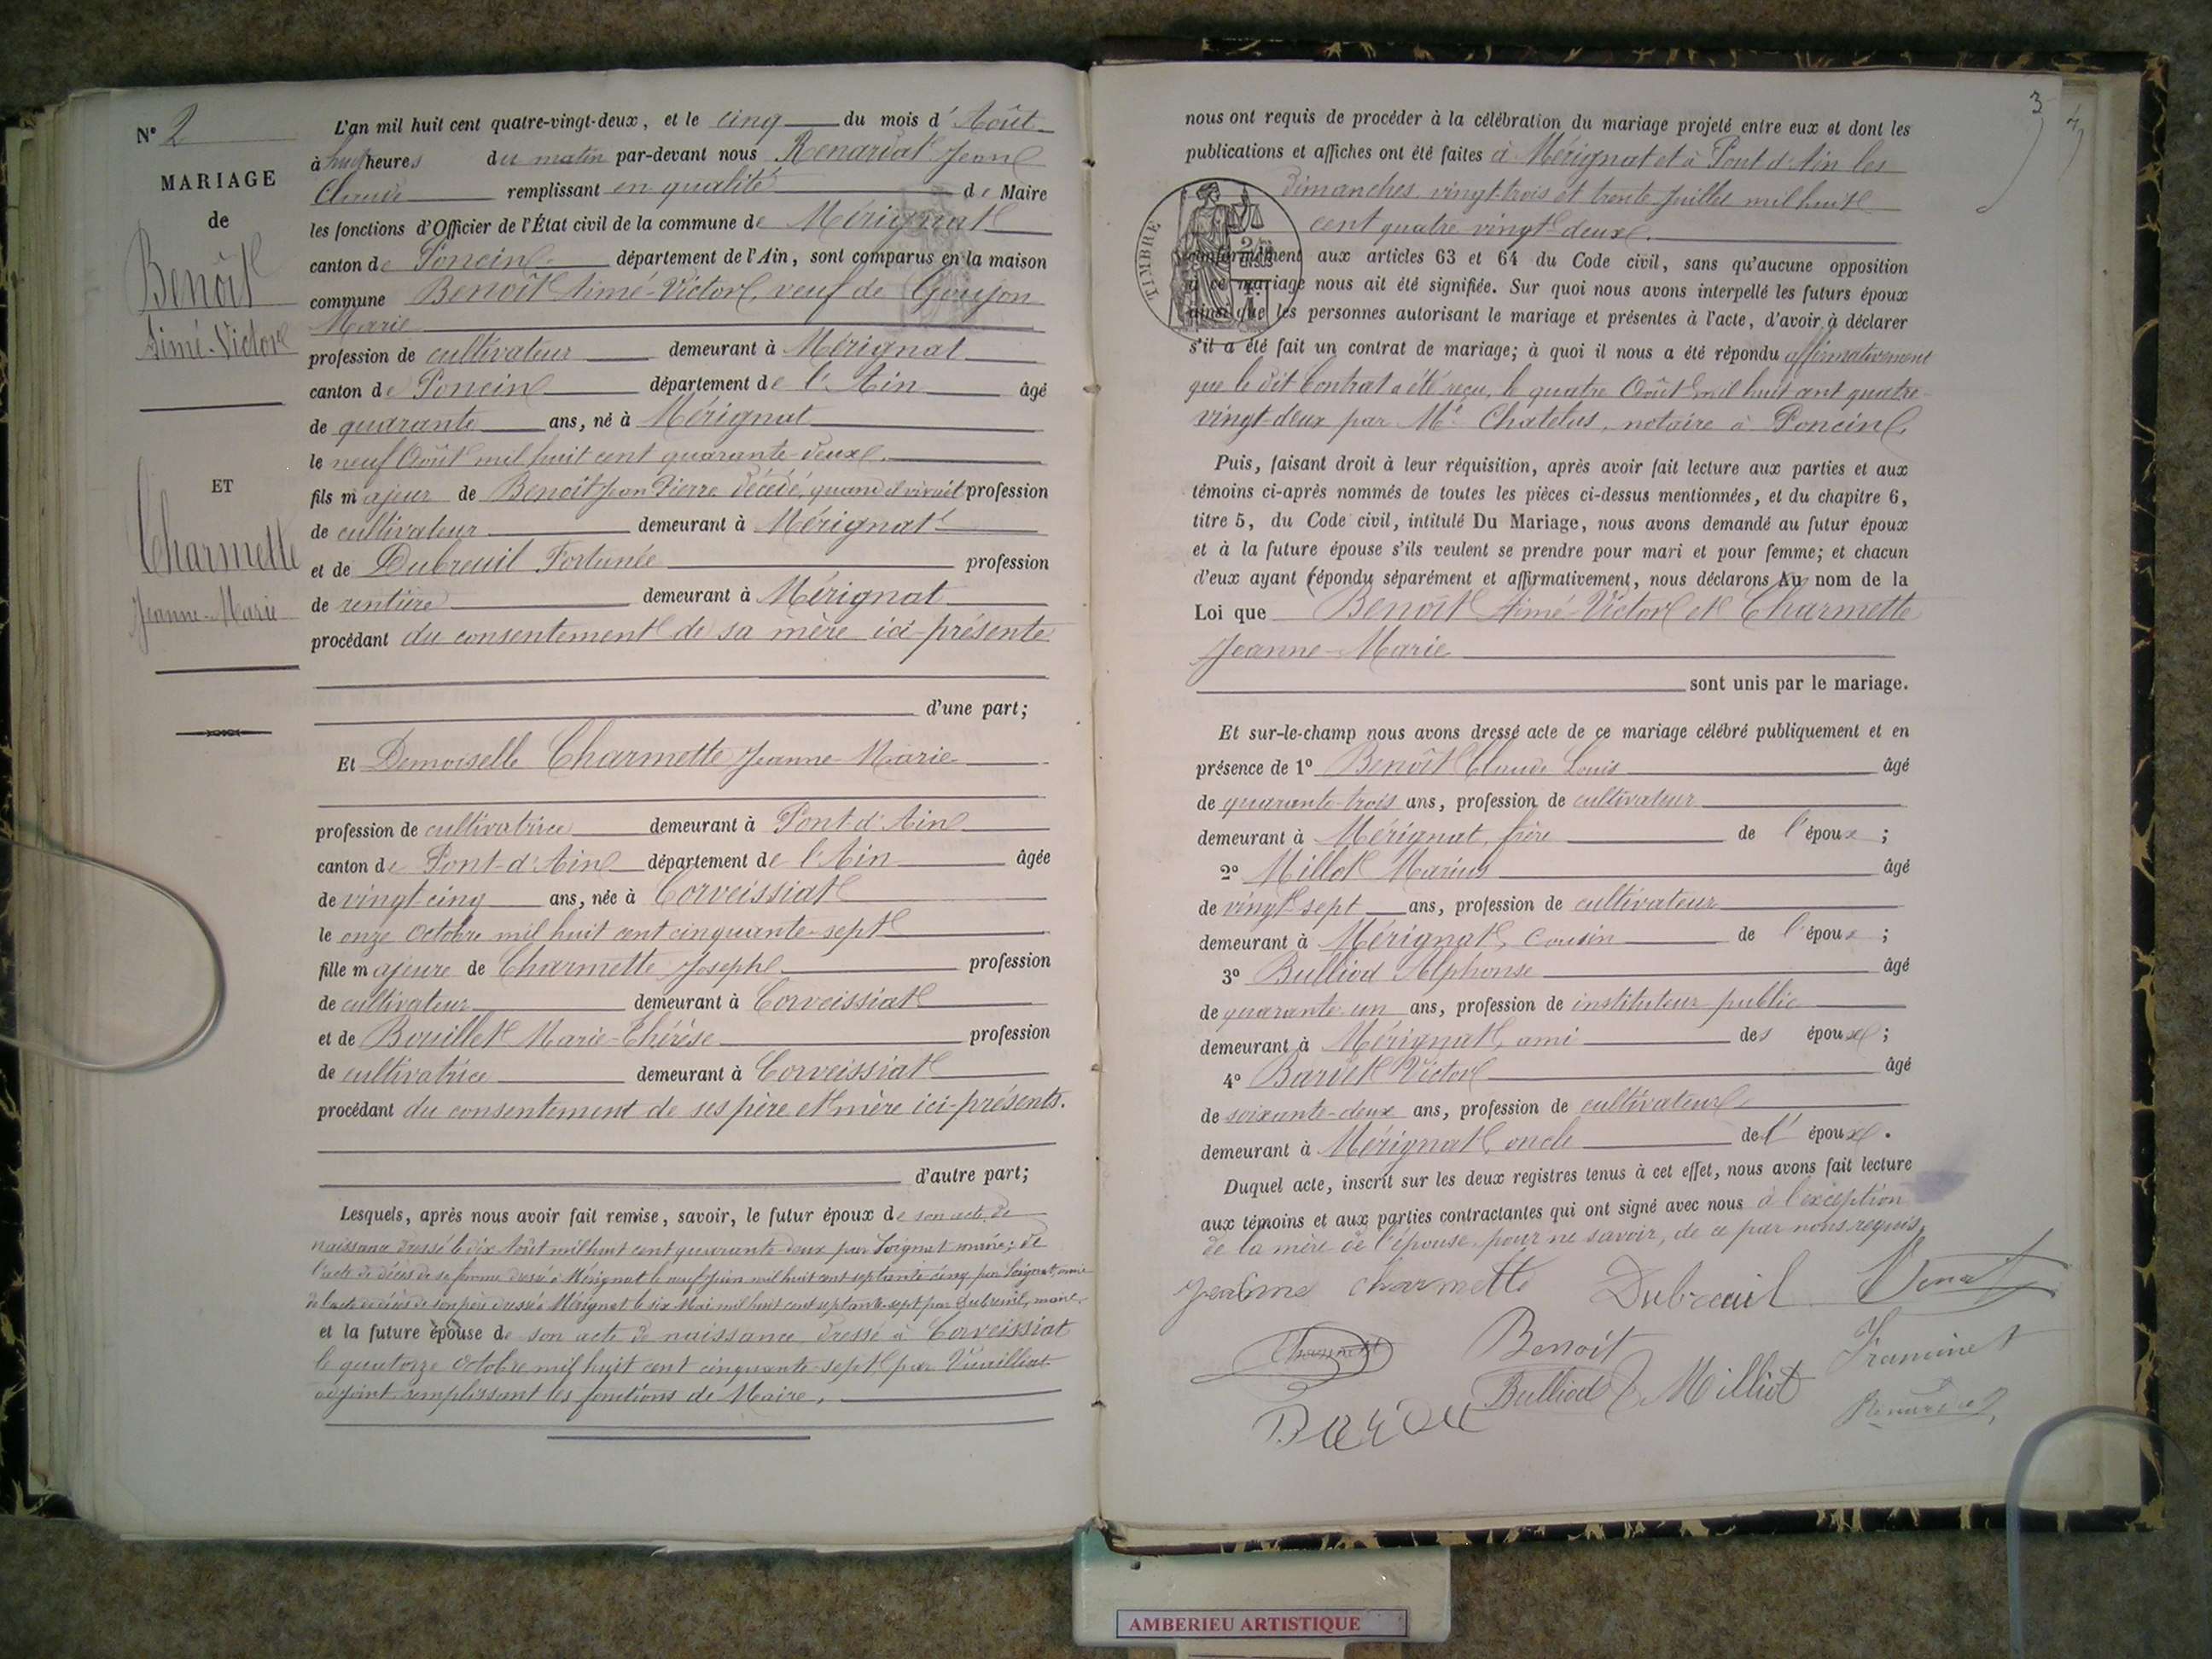 N° 2
MARIAGE
de
Benoît
Aimé-Victor
ET
Charmette
Jeanne-Marie
L'an mil huit cent quatre-vingt-deux, et le cinq du mois d'Août
à huit heures du matin par-devant nous Renariat Jean
Claude remplissant en qualité de Maire
les fonctions d'Officier de l'État civil de la commune de Mérignat
canton de Poncin département de l'Ain, sont comparus en la maison
commune Benoît Aimé-Victor, veuf de Goujon
Marie
profession de cultivateur demeurant à Mérignat
canton de Poncin département de l'Ain âgé
de quarante ans, né à Mérignat
le neuf Août mil huit cent quarante-deux.
fils majeur de Benoît Jean Pierre décédé, quand il vivait profession
de cultivateur demeurant à Mérignat
et de Dubreuil Fortunée profession
de rentière demeurant à Mérignat
procédant du consentement de sa mère ici-présente
d'une part;
Et Demoiselle Charmette Jeanne-Marie
profession de cultivatrice demeurant à Pont-d'Ain
canton de Pont-d'Ain département de l'Ain âgée
de vingt-cinq ans, née à Corveissiat
le onze Octobre mil huit cent cinquante-sept
fille majeure de Charmette Joseph profession
de cultivateur demeurant à Corveissiat
et de Bouillet Marie-Thérèse profession
de cultivatrice demeurant à Corveissiat
procédant du consentement de ses père et mère ici-présents.
d'autre part;
Lesquels, après nous avoir fait remise, savoir, le futur époux de son acte de
naissance dressé le dix Août mil huit cent quarante-deux par Soignat maire; de
l'acte de décès de sa femme dressé à Mérignat le neuf Juin mil huit cent septante-cinq par Soignat, maire
de l'acte de décès de son père dressé à Mérignat le six Mai mil huit cent septante-sept par Dubreuil, maire
et la future épouse de son acte de naissance dressé à Corveissiat
le quatorze Octobre mil huit cent cinquante-sept par Vuailliat
adjoint remplissant les fonctions de Maire.
3
4
nous ont requis de procéder à la célébration du mariage projeté entre eux et dont les
publications et affiches ont été faites à Mérignat et à Pont d'Ain les
dimanches vingt-trois et trente Juillet mil huit
cent quatre vingt deux.
TIMBRE
conformément aux articles 63 et 64 du Code civil, sans qu'aucune opposition
à ce mariage nous ait été signifiée. Sur quoi nous avons interpellé les futurs époux
ainsi que les personnes autorisant le mariage et présentes à l'acte, d'avoir à déclarer
s'il a été fait un contrat de mariage; à quoi il nous a été répondu affirmativement
que le dit Contrat a été reçu, le quatre Août mil huit cent quatre-
vingt-deux par Me Chatelus, notaire à Poncin.
Puis, faisant droit à leur réquisition, après avoir fait lecture aux parties et aux
témoins ci-après nommés de toutes les pièces ci-dessus mentionnées, et du chapitre 6,
titre 5, du Code civil, intitulé Du Mariage, nous avons demandé au futur époux
et à la future épouse s'ils veulent se prendre pour mari et pour femme; et chacun
d'eux ayant répondu séparément et affirmativement, nous déclarons Au nom de la
Loi que Benoît Aimé-Victor et Charmette
Jeanne-Marie
sont unis par le mariage.
Et sur-le-champ nous avons dressé acte de ce mariage célébré publiquement et en
présence de 1° Benoît Claude Louis âgé
de quarante-trois ans, profession de cultivateur
demeurant à Mérignat, frère de l'époux;
2° Millot Marius âgé
de vingt-sept ans, profession de cultivateur
demeurant à Mérignat, cousin de l'époux;
3° Bulliod Alphonse âgé
de quarante-un ans, profession de instituteur public
demeurant à Mérignat, ami des époux;
4° Bardet Victor âgé
de soixante-deux ans, profession de cultivateur
demeurant à Mérignat, oncle de l'époux.
Duquel acte, inscrit sur les deux registres tenus à cet effet, nous avons fait lecture
aux témoins et aux parties contractantes qui ont signé avec nous à l'exception
de la mère de l'épouse, pour ne savoir, de ce par nous requis,
charmette Dubreuil
Benoit Franinet
Bulliod Milliot
AMBERIEU ARTISTIQUE